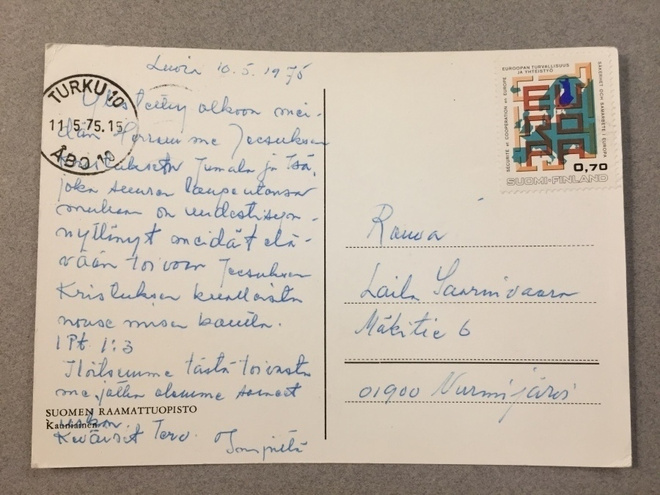 Luvia 10.5.1975
Ylistetty olkoon mei-
dän Herramme Jeesuksen
Kristuksen Jumala ja Isä,
joka suuren laupeutensa
mukaan on uudestisyn-
nyttänyt meidät elä-
vään toivoon Jeesuksen
Kristuksen kuolleista
nousemisen kautta.
1 Pt. 1:3
Iloitsemme tästä toivosta
me, jotka olemme saaneet
Keväiset Terv.
TURKU 10
11.5.75.15
ÅBO 10
SUOMEN RAAMATTUOPISTO
Kauniainen
EUROOPAN TURVALLISUUS
JA YHTEISTYÖ
SÉCURITÉ et COOPÉRATION en EUROPE
SÄKERHET OCH SAMARBETE I EUROPA
0,70
SUOMI-FINLAND
Rouva
Laila Saarnivaara
Mäkitie 6
01900 Nurmijärvi